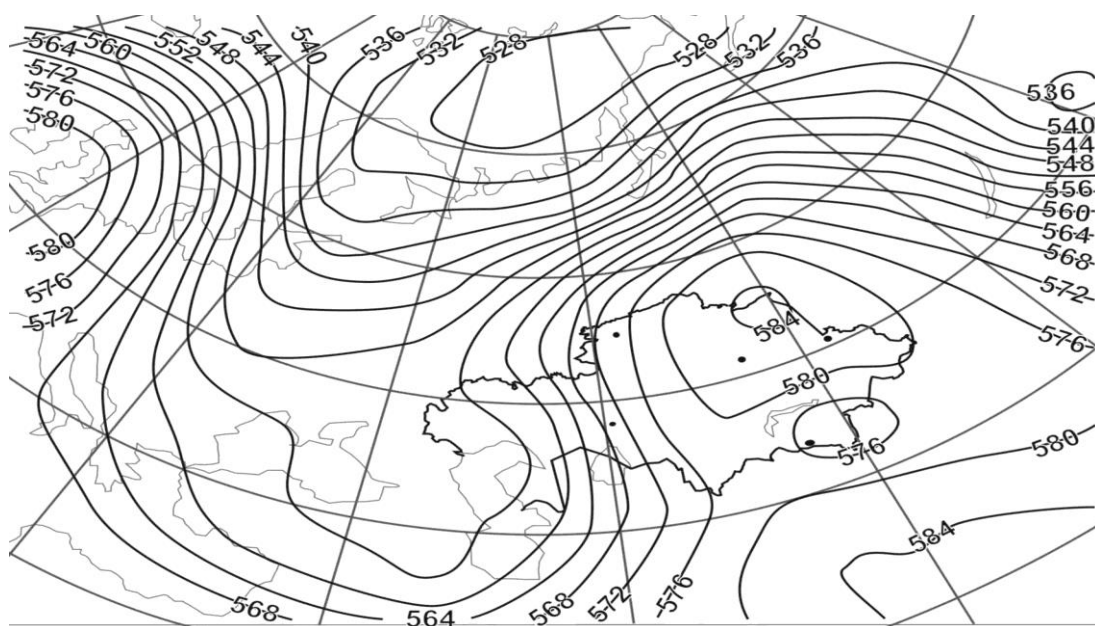 564 560 552 548 544 540 536 532 528 528 532 536
572
576
580
536
540
544
548
556
560
564
568
572
576
580
576
572
584
580
576
580
584
568 564 568 572 576